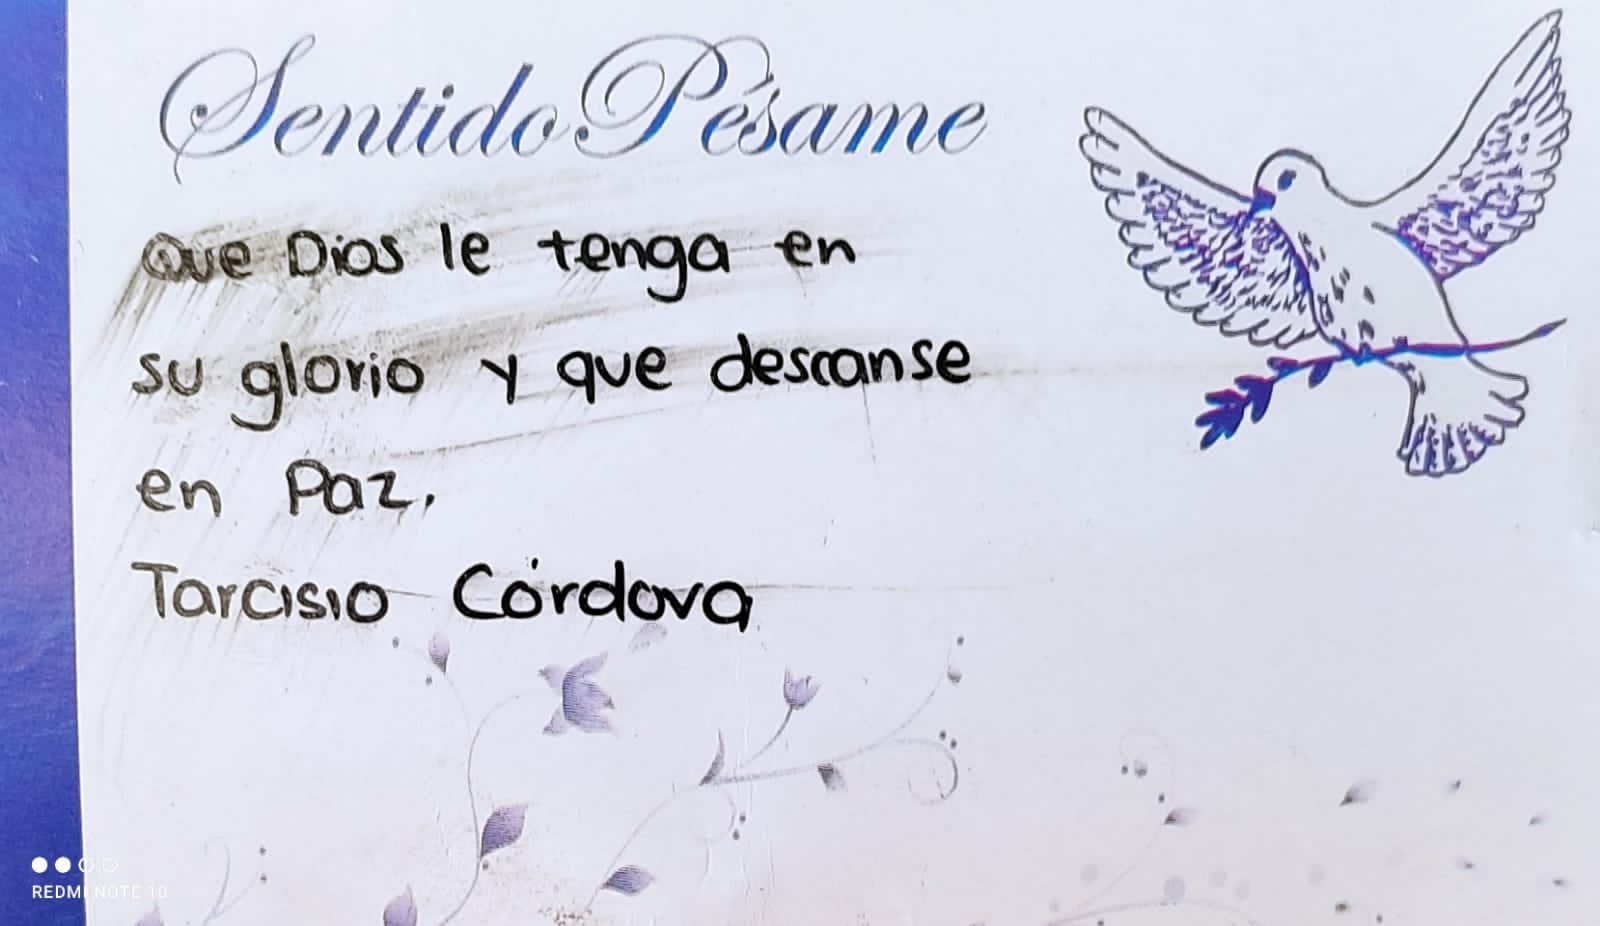 Sentido Pésame
Que Dios le tenga en
su gloria y que descanse
en Paz.
Tarcisio Córdova
REDMI NOTE 10